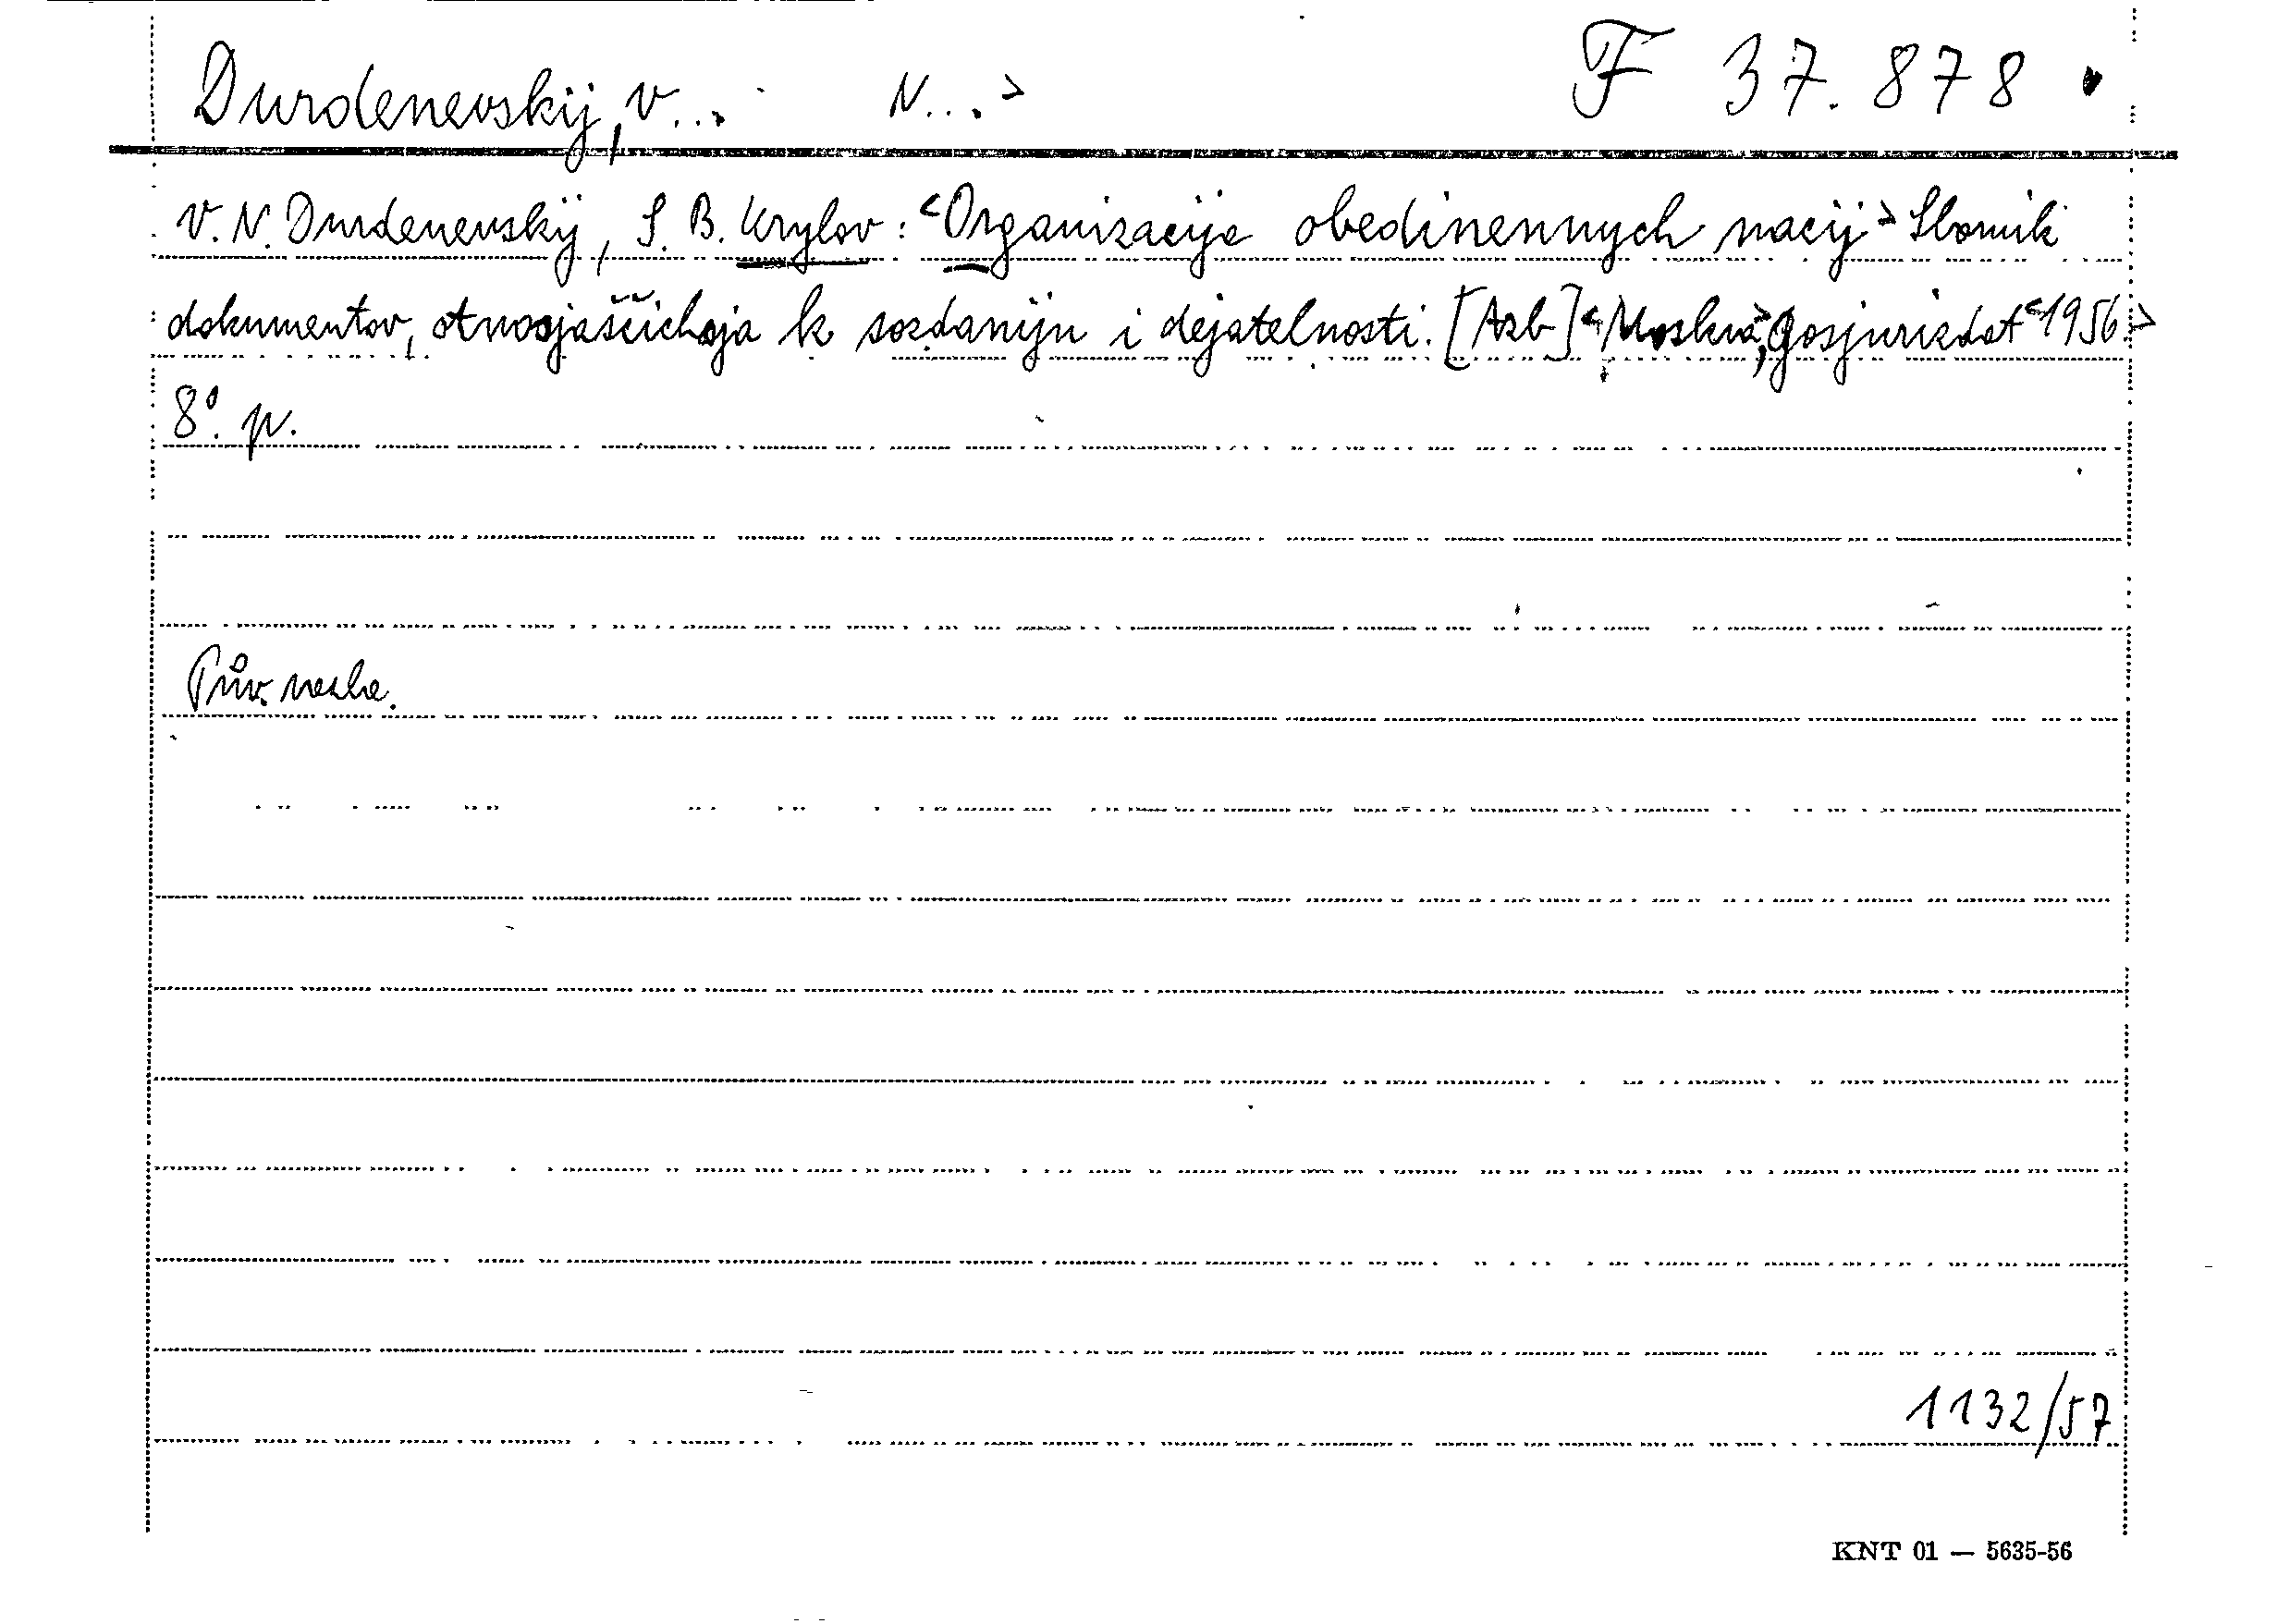 Durdenevskij, V... N...> F 37.878
V. N. Durdenevskij, S. B. Krylov: <Organizacije obedinennych nacij> Sbornik
dokumentov, otnosjaščichsja k sozdaniju i dejatelnosti. [Azb] <Moskva>, Gosjurizdat <1956.>
8°. p.
Pův. nezka.
1132/57
KNT 01 — 5635-56